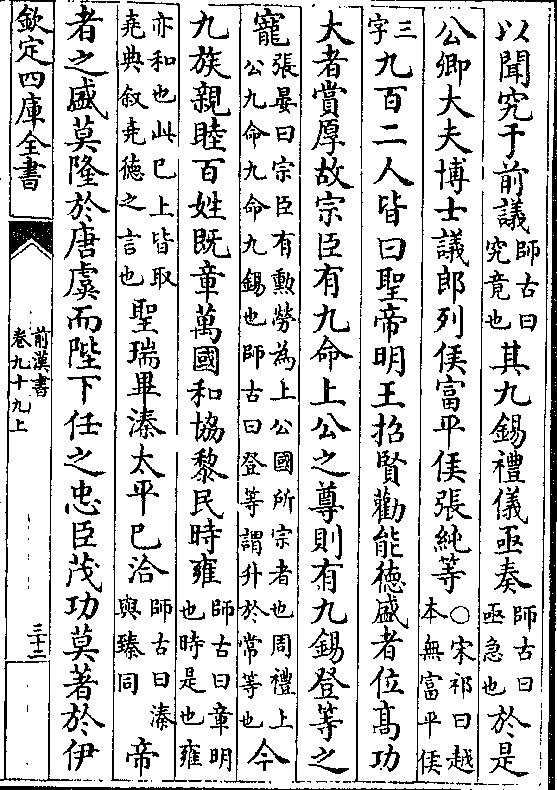 以聞究于前議師古曰究竟也其九錫禮儀亟奏師古曰亟急也於是
公卿大夫博士議郎列侯富平侯張純等○宋祁曰越本無富平侯
三字九百二人皆曰聖帝明王招賢勸能徳盛者位髙功
大者賞厚故宗臣有九命上公之尊則有九錫登等之
寵張晏曰宗臣有勲勞為上公國所宗者也周禮上公九命九命九錫也師古曰登等謂升於常等也今
九族親睦百姓既章萬國和協黎民時雍師古曰章明也時是也雍
亦和也此巳上皆取堯典叙堯徳之言也聖瑞畢溱太平巳洽師古曰溱與臻同帝
者之盛莫隆於唐虞而陛下任之忠臣茂功莫著於伊
欽定四庫全書
前漢書
卷九十九上
三十三